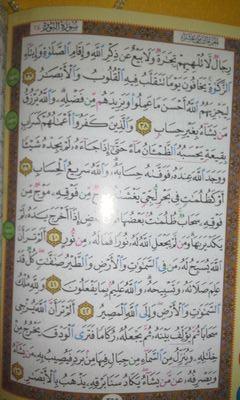 سُورَةُ النُّورِ
رِجَالٌ لَّا تُلْهِيهِمْ تِجَـٰرَةٌ وَلَا بَيْعٌ عَن ذِكْرِ ٱللَّهِ وَإِقَامِ ٱلصَّلَوٰةِ وَإِيتَآءِ
ٱلزَّكَوٰةِ يَخَافُونَ يَوْمًا تَتَقَلَّبُ فِيهِ ٱلْقُلُوبُ وَٱلْأَبْصَـٰرُ ٣٧
لِيَجْزِيَهُمُ ٱللَّهُ أَحْسَنَ مَا عَمِلُوا۟ وَيَزِيدَهُم مِّن فَضْلِهِۦ وَٱللَّهُ يَرْزُقُ
مَن يَشَآءُ بِغَيْرِ حِسَابٍ ٣٨ وَٱلَّذِينَ كَفَرُوٓا۟ أَعْمَـٰلُهُمْ كَسَرَابٍۭ
بِقِيعَةٍ يَحْسَبُهُ ٱلظَّمْـَٔانُ مَآءً حَتَّىٰٓ إِذَا جَآءَهُۥ لَمْ يَجِدْهُ شَيْـًٔا
وَوَجَدَ ٱللَّهَ عِندَهُۥ فَوَفَّىٰهُ حِسَابَهُۥ وَٱللَّهُ سَرِيعُ ٱلْحِسَابِ ٣٩
أَوْ كَظُلُمَـٰتٍ فِى بَحْرٍ لُّجِّىٍّ يَغْشَىٰهُ مَوْجٌ مِّن فَوْقِهِۦ مَوْجٌ مِّن
فَوْقِهِۦ سَحَابٌ ظُلُمَـٰتٌۢ بَعْضُهَا فَوْقَ بَعْضٍ إِذَآ أَخْرَجَ يَدَهُۥ لَمْ
يَكَدْ يَرَىٰهَا وَمَن لَّمْ يَجْعَلِ ٱللَّهُ لَهُۥ نُورًا فَمَا لَهُۥ مِن نُّورٍ ٤٠ أَلَمْ تَرَ أَنَّ
ٱللَّهَ يُسَبِّحُ لَهُۥ مَن فِى ٱلسَّمَـٰوَٰتِ وَٱلْأَرْضِ وَٱلطَّيْرُ صَـٰٓفَّـٰتٍ كُلٌّ قَدْ
عَلِمَ صَلَاتَهُۥ وَتَسْبِيحَهُۥ وَٱللَّهُ عَلِيمٌۢ بِمَا يَفْعَلُونَ ٤١ وَلِلَّهِ مُلْكُ
ٱلسَّمَـٰوَٰتِ وَٱلْأَرْضِ وَإِلَى ٱللَّهِ ٱلْمَصِيرُ ٤٢ أَلَمْ تَرَ أَنَّ ٱللَّهَ يُزْجِى
سَحَابًا ثُمَّ يُؤَلِّفُ بَيْنَهُۥ ثُمَّ يَجْعَلُهُۥ رُكَامًا فَتَرَى ٱلْوَدْقَ يَخْرُجُ مِنْ
خِلَـٰلِهِۦ وَيُنَزِّلُ مِنَ ٱلسَّمَآءِ مِن جِبَالٍ فِيهَا مِنۢ بَرَدٍ فَيُصِيبُ بِهِۦ مَن يَشَآءُ
وَيَصْرِفُهُۥ عَن مَّن يَشَآءُ يَكَادُ سَنَا بَرْقِهِۦ يَذْهَبُ بِٱلْأَبْصَـٰرِ ٤٣